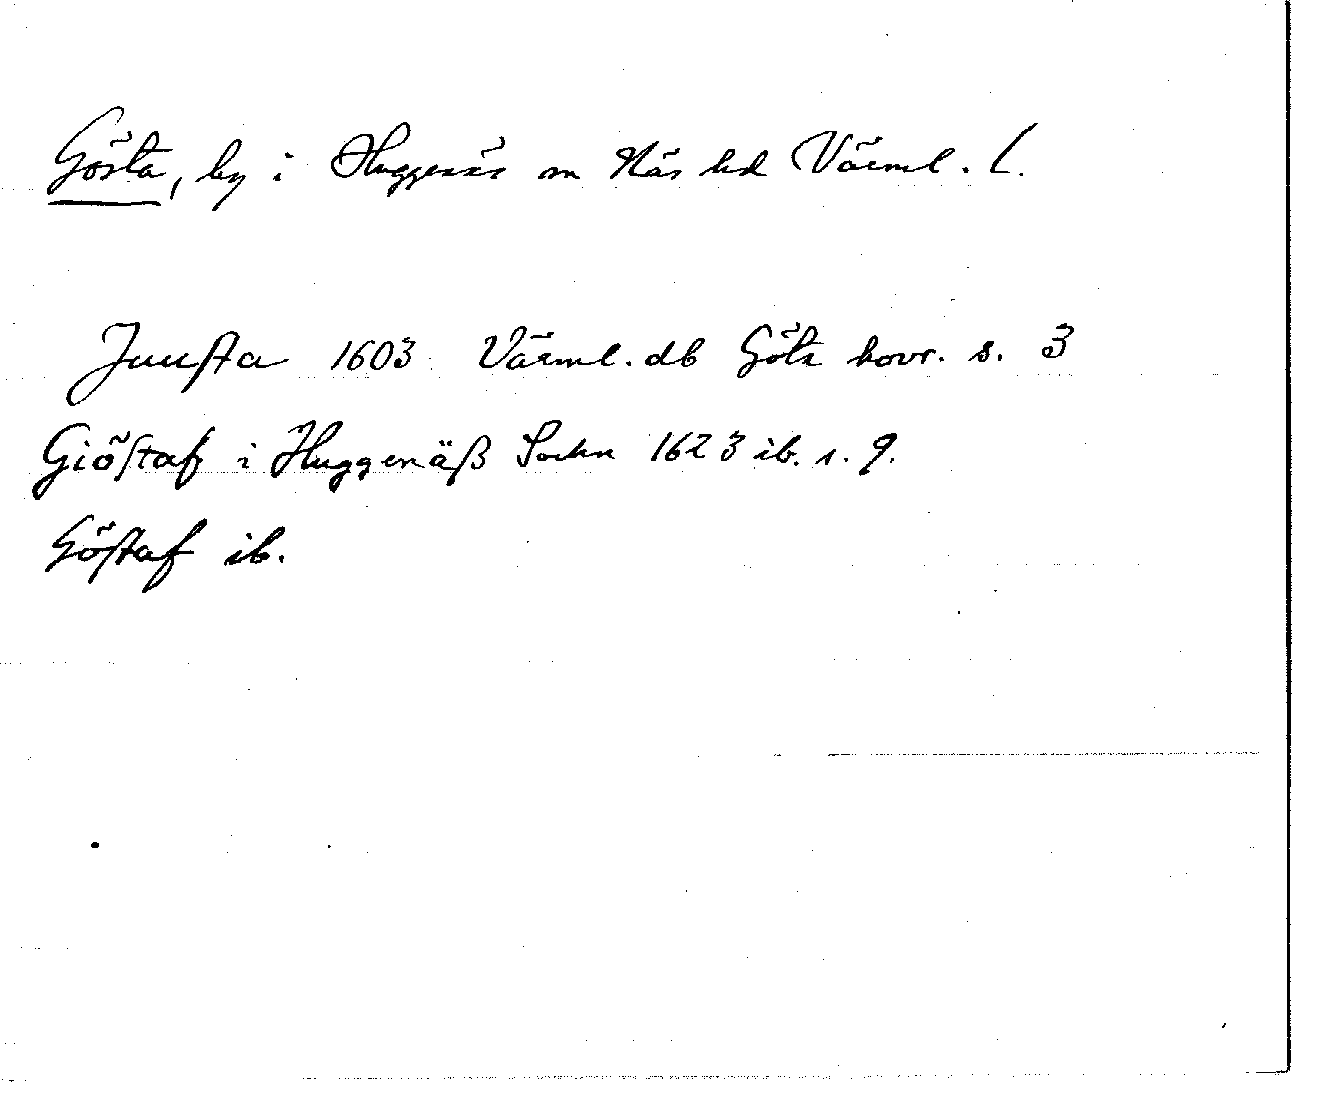 Gösta, by i Huggenäs sn Näs hd Värml. l.
Juusta 1603 Värml. db Göta hovr. s. 3
Giöstaf i Huggenäß Sochn 1623 ib. s. 9.
Göstaf ib.